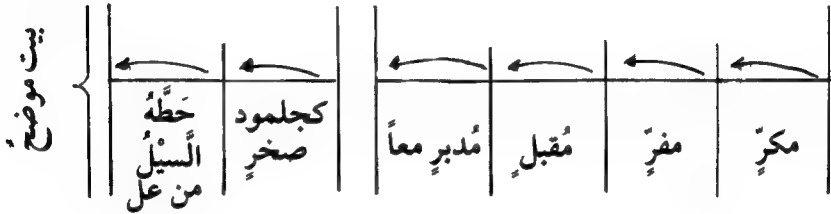 مكرٍّ
مفرٍّ
مُقبلٍ
مُدبرٍ معاً
كجلمود
صخرٍ
حَطَّهُ
الَّسيْلُ
من عل
بيت موضحٌ